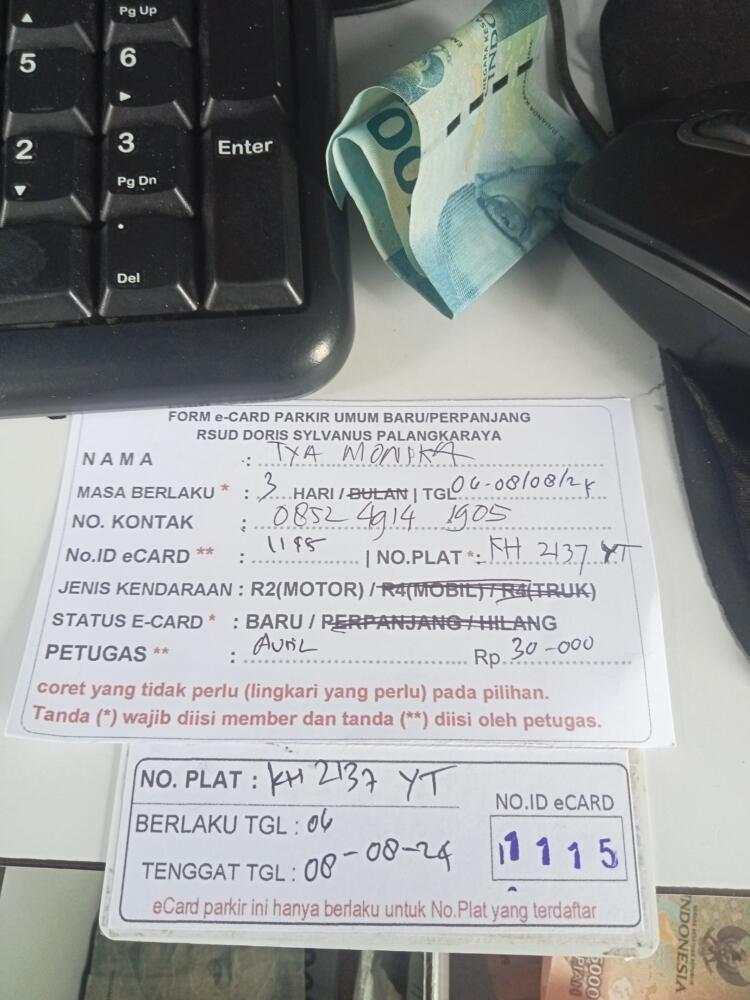 Pg Up
5
6
2
3
Pg Dn
Enter
.
Del
FORM e-CARD PARKIR UMUM BARU/PERPANJANG
RSUD DORIS SYLVANUS PALANGKARAYA
NAMA : TYA MONIKA
MASA BERLAKU * : 3 HARI / BULAN | TGL 06-08/08/24
NO. KONTAK : 0852 4914 1905
No.ID eCARD ** : 1115 | NO.PLAT *: KH 2137 YT
JENIS KENDARAAN : R2(MOTOR) / R4(MOBIL) / R4(TRUK)
STATUS E-CARD * : BARU / PERPANJANG / HILANG
PETUGAS ** : AURIL Rp. 30-000
coret yang tidak perlu (lingkari yang perlu) pada pilihan.
Tanda (*) wajib diisi member dan tanda (**) diisi oleh petugas.
NO. PLAT : KH 2137 YT
BERLAKU TGL : 06
TENGGAT TGL : 08-08-24
NO.ID eCARD
1115
eCard parkir ini hanya berlaku untuk No.Plat yang terdaftar
INDONESIA